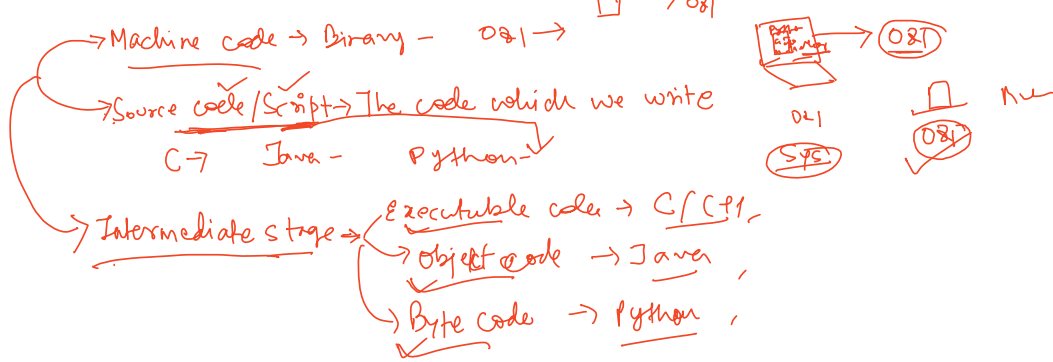 0&1
Machine code → Binary - 0&1 →
0&1
Source code/Script → The code which we write
0&1
0&1
C → Java - Python -
Sys
Intermediate stage → Executable code → C/C++,
Object code → Java,
Byte code → Python,